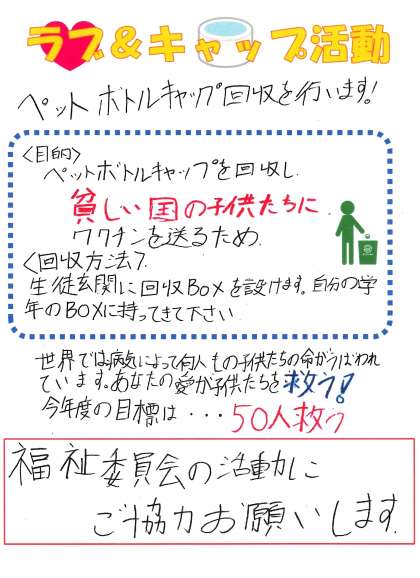 ラブ&キャップ活動
ペットボトルキャップ回収を行います!
<目的>
ペットボトルキャップを回収し
貧しい国の子供たちに
ワクチンを送るため.
<回収方法>
生徒玄関に回収BOXを設けます。自分の学
年のBOXに持ってきて下さい
世界では病気によって何人もの子供たちの命がうばわれ
ています。あなたの愛が子供たちを救う!
今年度の目標は・・・50人救う
福祉委員会の活動に
ご協力お願いします.